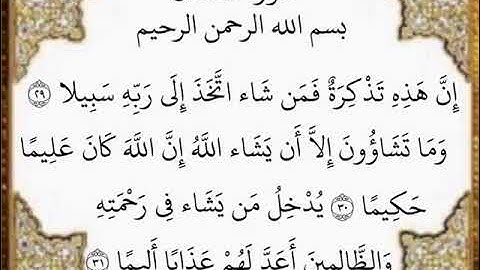 بسم الله الرحمن الرحيم
إِنَّ هَذِهِ تَذْكِرَةٌ فَمَن شَاء اتَّخَذَ إِلَى رَبِّهِ سَبِيلا ﴿٢٩﴾
وَمَا تَشَاؤُونَ إِلاَّ أَن يَشَاء اللَّهُ إِنَّ اللَّهَ كَانَ عَلِيمًا
حَكِيمًا ﴿٣٠﴾ يُدْخِلُ مَن يَشَاء فِي رَحْمَتِهِ
وَالظَّالِمِينَ أَعَدَّ لَهُمْ عَذَابًا أَلِيمًا ﴿٣١﴾